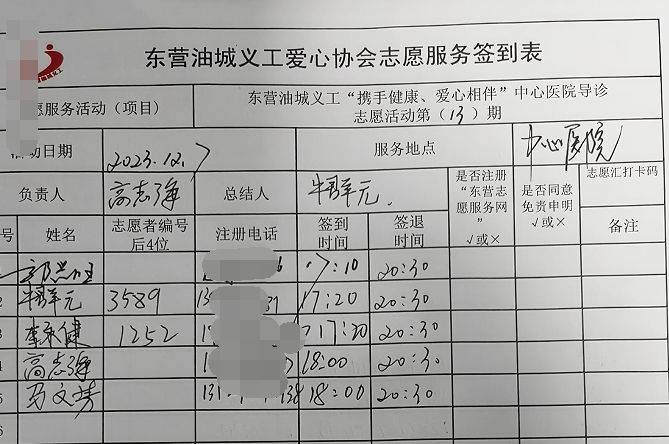 东营油城义工爱心协会志愿服务签到表
愿服务活动（项目） 东营油城义工“携手健康、爱心相伴”中心医院导诊
志愿活动第（13）期
活动日期 2023.12.7 服务地点 中心医院
负责人 高志强 总结人 牛群元 是否注册“东营志愿服务网”√或× 是否同意免责申明√或× 志愿汇打卡码
号 姓名 志愿者编号后4位 注册电话 签到时间 签退时间 备注
:10 20:30
2 牛群元 3589 17:20 20:30
3 李永健 1252 17:20 20:30
4 高志强 18:00 20:30
5 马文芳 131 138 18:00 20:30
6